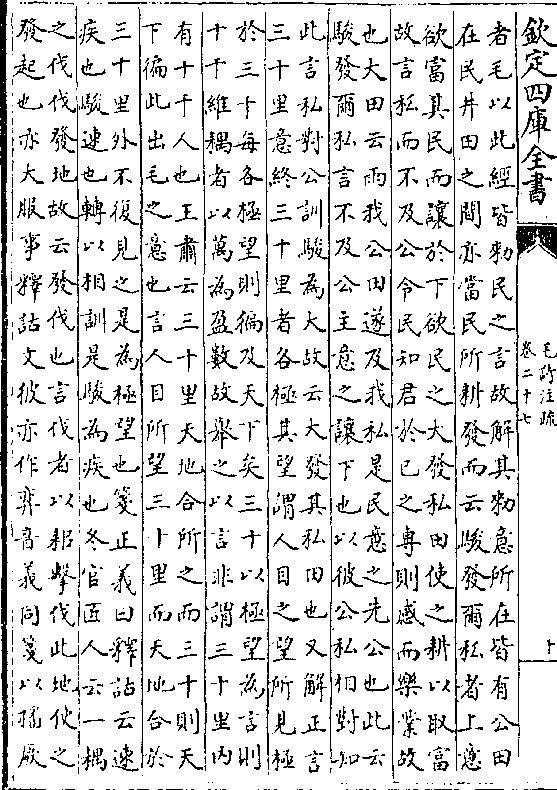 欽定四庫全書
毛詩注疏
卷二十七
十
者毛以此經皆勑民之言故解其勑意所在皆有公田
在民井田之間亦當民所耕發而云駿發爾私者上意
欲富其民而讓於下欲民之大發私田使之耕以取富
故言私而不及公令民知君於已之專則感而樂業故
也大田云雨我公田遂及我私是民意之先公也此云
駿發爾私言不及公主意之讓下也以彼公私相對知
此言私對公訓駿為大故云大發其私田也又解正言
三十里意終三十里者各極其望謂人目之望所見極
於三十每各極望則徧及天下矣三十以極望為言則
十千維耦者以萬為盈數故舉之以言非謂三十里内
有十千人也王肅云三十里天地合所之而三十則天
下徧此出毛之意也言人目所望三十里而天地合於
三十里外不復見之是為極望也箋正義曰釋詁云速
疾也駿速也轉以相訓是駿為疾也冬官匠人云一耦
之伐伐發地故云發伐也言伐者以耜擊伐此地使之
發起也亦大服事釋詁文彼亦作弈音義同箋以瑤厥